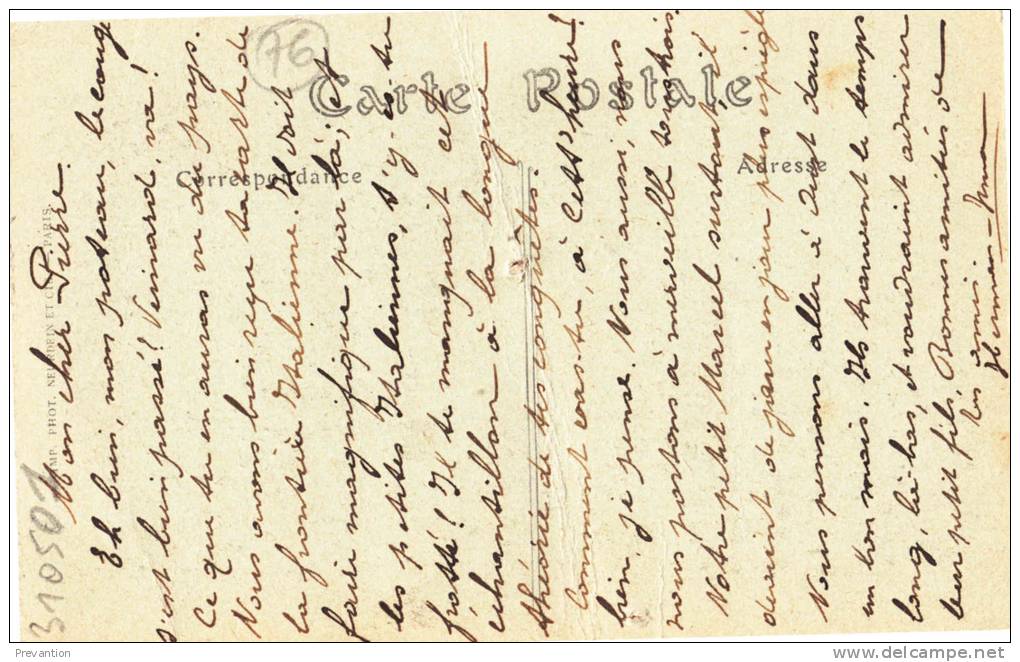 Mon cher Pierre.
Eh bien, mon poteau, le cong
s'est bien passé! Veinard, va!
Ce que tu en auras vu du pays.
Nous avons bien reçu ta carte de
la frontière Italienne. Il doit
faire magnifique par là; et
les petites Italiennes, t'y es-tu
frotté? Il te manquait cet
échantillon à la longue
théorie de tes conquêtes.
Comment vas-tu, à cett'heure?
bien, je pense. Nous aussi, nous
nous portons à merveille toujours.
Notre petit Marcel surtout, il
devient de jour en jour plus espiègle
Nous pensons aller à Ault dans
un bon mois. Ils trouvent le temps
long, là-bas, et voudraient admirer
leur petit fils. Bonnes amitiés de
tes amis.
Carte Postale
Correspondance
Adresse
IMP. PHOT. NEURDEIN ET CIE. PARIS.
76
310507
Prevantion
www.delcampe.net